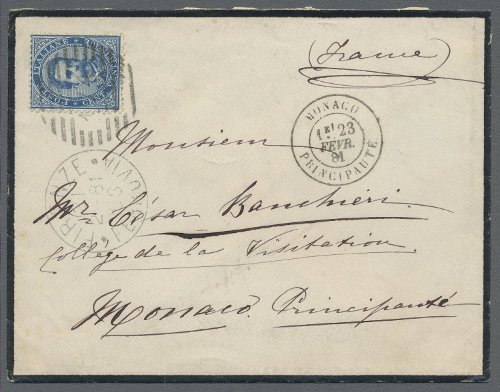 (France)
MONACO
1E/ 23
FEVR.
81
PRINCIPAUTÉ
Monsieur
Mr César Banchieri
College de la Visitation
Monaco Principauté